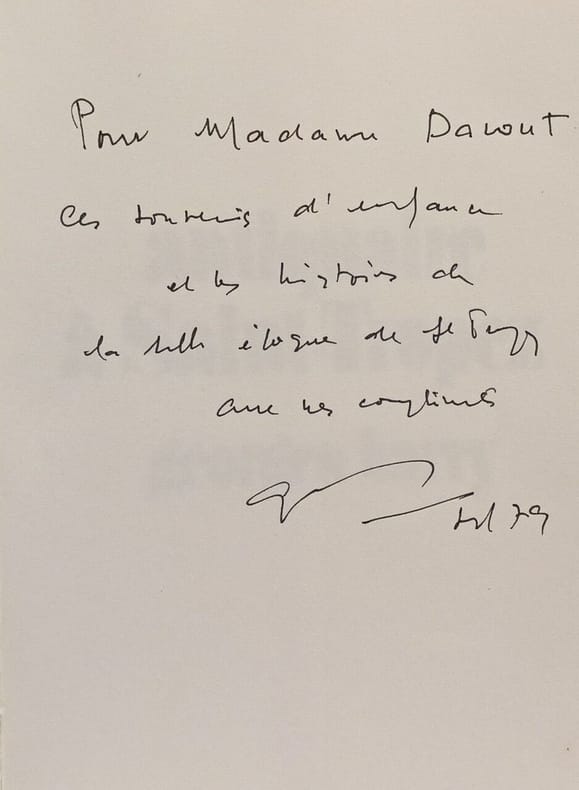 Pour Madame Davout
Ces souvenirs d'enfance
et les histoires de
la belle époque de St Tropez
avec mes compliments
79